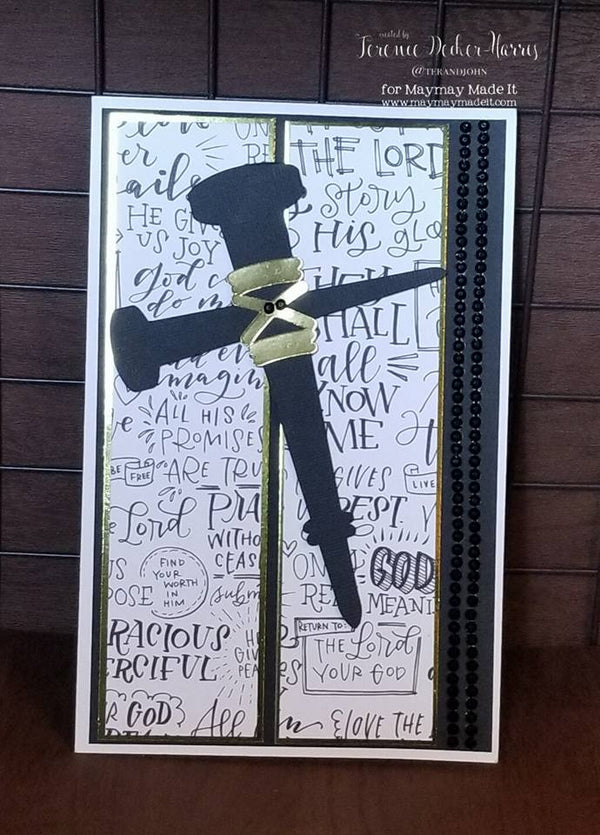 created by
Terence Decker-Harris
@TERANDJOHN
for Maymay Made It
www.maymaymadeit.com
ON
RE
HE GIV
US JOY
god c
do m
imagin
ALL HIS
PROMISES
BE FREE
ARE TRU
Lord
PRA
WITHO
CEAS
FIND
YOUR
WORTH
IN
HIM
submi
RACIOUS
RCIFUL
HE
GIV
PEA
R GOD
All
THE LORD
Story
HIS glo
THEY
SHALL
all
KNOW
ME
GIVES
REST.
LIVE
ONLY
GOD
MEANI
RETURN TO:
THE Lord
YOUR GOD
LOVE THE